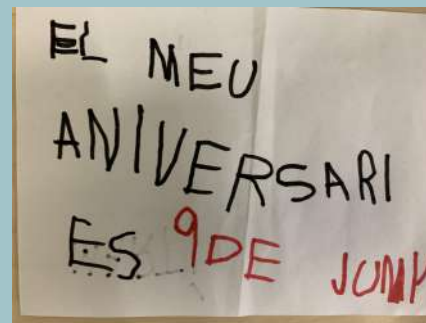 EL MEU
ANIVERSARI
ES 9 DE JUNY